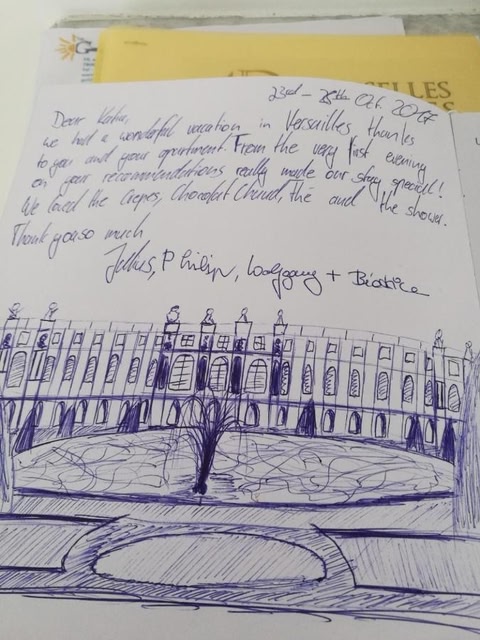 ELLES
ES
23rd - 28th Oct. 2017
Dear Katia,
we had a wonderful vacation in Versailles, thanks
to you and your apartment. From the very first evening
on your recommendations really made our stay special!
We loved the Crepes, Chocolat Chaud, thé and the shower.
Thank you so much
Julius, Philipp, Wolfgang + Beatrice